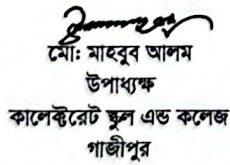 মোঃ মাহবুব আলম
উপাধ্যক্ষ
কালেক্টরেট স্কুল এন্ড কলেজ
গাজীপুর